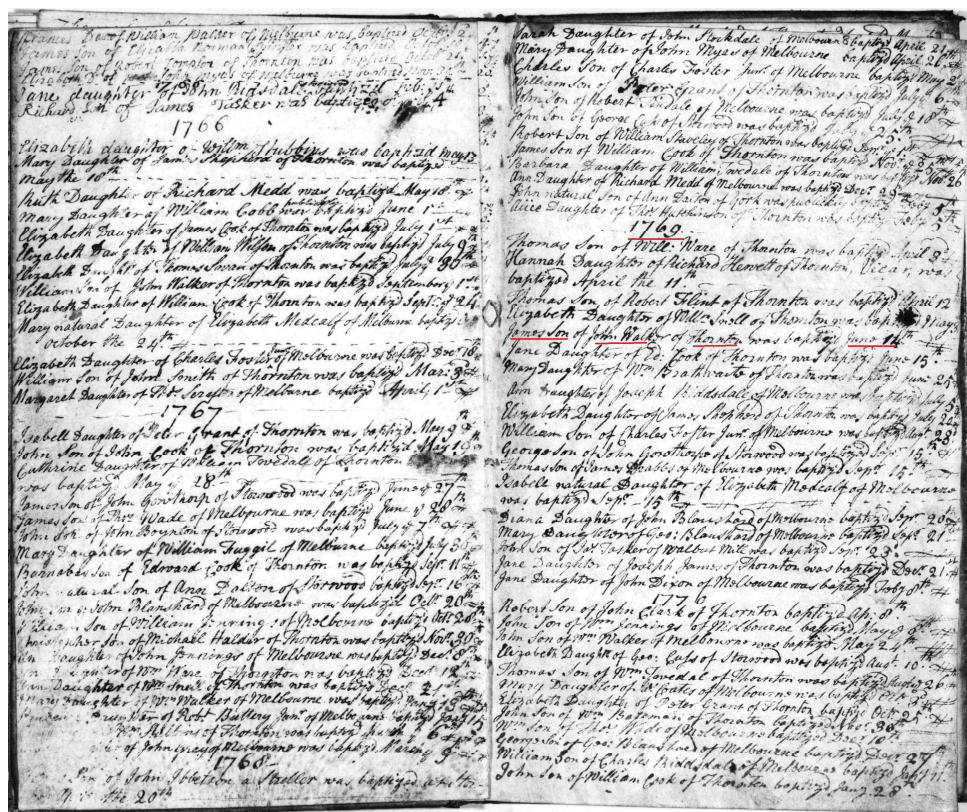 Frances Daur of William Walker of Melburne was baptized
James Son of Elizabeth Norman Spinster was baptized
Son of Robert Tompson of Thornton was baptized
Elizabeth D. of John Myes of Melburne was baptized
Jane daughter of John Ridsdale baptized Feb
Richard Son of James Tasker was baptized 4
1766
Elizabeth daughter of Willm Stubbins was baptized May 13
Mary Daughter of James Shepherd of Thornton was baptized
May the 18th
Ruth Daughter of Richard Medd was baptizd May 18th
Mary Daughter of William Cobb was publickly baptizd June 1st
Elizabeth Daughter of James Cook of Thornton was baptizd July 1st
Elizabeth Daughter of William of Thornton was baptizd July 9th
Elizabeth Daught of Thomas of Thornton was baptizd July 30th
William Son of John Walker of Thornton was baptizd September 1st
Elizabeth Daughter of William Cook of Thornton was baptizd Sept. 24
Mary natural Daughter of Elizabeth Medcalf of Melburne baptizd
october the 24th
Elizabeth Daughter of Charles Foster of Melbourne was baptizd Decr 18th
William Son of John Smith of Thornton was baptizd Mar: 3d
Margaret Daughter of Thos. of Melburne baptizd April 1st
1767
Isabell Daughter of Peter Grant of Thornton was baptizd May 9th
John Son of John Cook of Thornton was baptizd May 18th
Cathrine Daughter of William Tovedale of Thornton
was baptizd May 28th
James Son of John Gowthorp of Storwood was baptizd June 27th
James Son of Thos Wade of Melbourne was baptizd June 28th
John Son of John Boynton of Storwood was baptizd July 7th
Mary Daughter of William Fuggil of Melburne baptizd July
Barnabas Son of Edward Cook of Thornton was baptizd Sepr. 11th
John natural Son of Ann Dalton of Storwood baptizd Sepr. 16
John Son of John Blanshard of Melbourne was baptizd Octr. 20th
William Son of William Jennings of Melbourne baptizd Octr 28
Christopher Son of Michael Halder of Thornton was baptizd Novr. 30
Daughter of John Jennings of Melbourne was baptizd Decr. 8th
Daughter of Wm Ware of Thornton was baptizd Decr 12th
Ann Daughter of Wm of Thornton was baptizd
Mary Daughter of Wm Walker of Melbourne was baptizd Janry 13
Daughter of Robt Buttery Junr of Melbourne baptizd Janry 14
Wm of Thornton was baptizd March 6th
of John Grey of Melbourne was baptizd March 9th
1768
Son of John Ibbetson a Stroller was baptized at
the 20th
Sarah Daughter of John Stockdale of Melbourn baptizd April 24
Mary Daughter of John Myes of Melbourne baptizd April 26
Charles Son of Charles Foster Junr. of Melbourne baptizd May 2
William Son of Peter Grant of Thornton was baptizd July 6th
John Son of Robert Tisdale of Melbourne was baptizd July 18th
John Son of George Cook of Storwood was baptizd July 25th
Robert Son of William Staveley of Thornton was baptizd Sepr. 1st
James Son of William Cook of Thornton was baptizd Novr. 23
Barbara Daughter of William Tovedale of Thornton was baptizd Novr 26
Ann Daughter of Richard Medd of Melbourne was baptizd Decr. 29
John natural Son of Ann Daxon of York was publickly baptizd 5th
Alice Daughter of Thos Hutchinson of Thornton was baptizd Feby 5th
1769
Thomas Son of Will: Ware of Thornton was baptizd April 3d
Hannah Daughter of Richard Hewett of Thornton, Vicar, was
baptized April the 11th
Thomas Son of Robert Flint of Thornton was baptizd April 12
Elizabeth Daughter of Willm Snell of Thornton was baptizd May
James Son of John Walker of Thornton was baptizd June 14th
Jane Daughter of Ed: Cook of Thornton was baptizd June 15th
Mary Daughter of Wm Brathwaite of Thornton was baptizd June 25th
Ann Daughter of Joseph Riddsdale of Melbourne was baptizd July
Elizabeth Daughter of James Shepherd of Thornton was baptizd July
William Son of Charles Foster Junr. of Melbourne was baptizd Augt 28
George Son of John Gowthorpe of Storwood was baptizd Sepr 15th
Thomas Son of James Crabbs of Melbourne was baptizd Sepr. 15th
Isabell natural Daughter of Elizabeth Medcalf of Melbourne
was baptizd Sepr. 15th
Diana Daughter of John Blanshard of Melbourne baptizd Sepr 20th
Mary Daughter of Geo: Blanshard of Melbourne baptizd Sepr. 21
John Son of Jas Tasker of Walbut Mill was baptizd Sepr. 23
Jane Daughter of Joseph James of Thornton baptizd Decr. 21
Jane Daughter of John Dixon of Melbourne was baptizd Feby 8th
1770
Robert Son of John Clark of Thornton baptizd Apr. 8th
John Son of Wm Jennings of Melbourne baptizd May 9th
John Son of Wm Walker of Melbourne was baptizd May 24th
Elizabeth Daughtr of Geo: Cuss of Storwood was baptizd Augt. 10th
Thomas Son of Wm Tovedal of Thornton was baptizd Augst 26
Mary Daughter of Coates of Melbourne was baptizd
Elizabeth Daughter of Peter Grant of Thornton baptizd Octr 25th
John Son of Wm Bateman of Thornton baptizd Novr. 30th
Wm Son of Thos Wade of Melbourne baptizd Decr. 8th
George Son of Geo: Blanshard of Melbourne baptizd Decr 27
William Son of Charles Riddsdale of Melbourne baptizd Jany 11
John Son of William Cook of Thornton baptizd Jany. 28